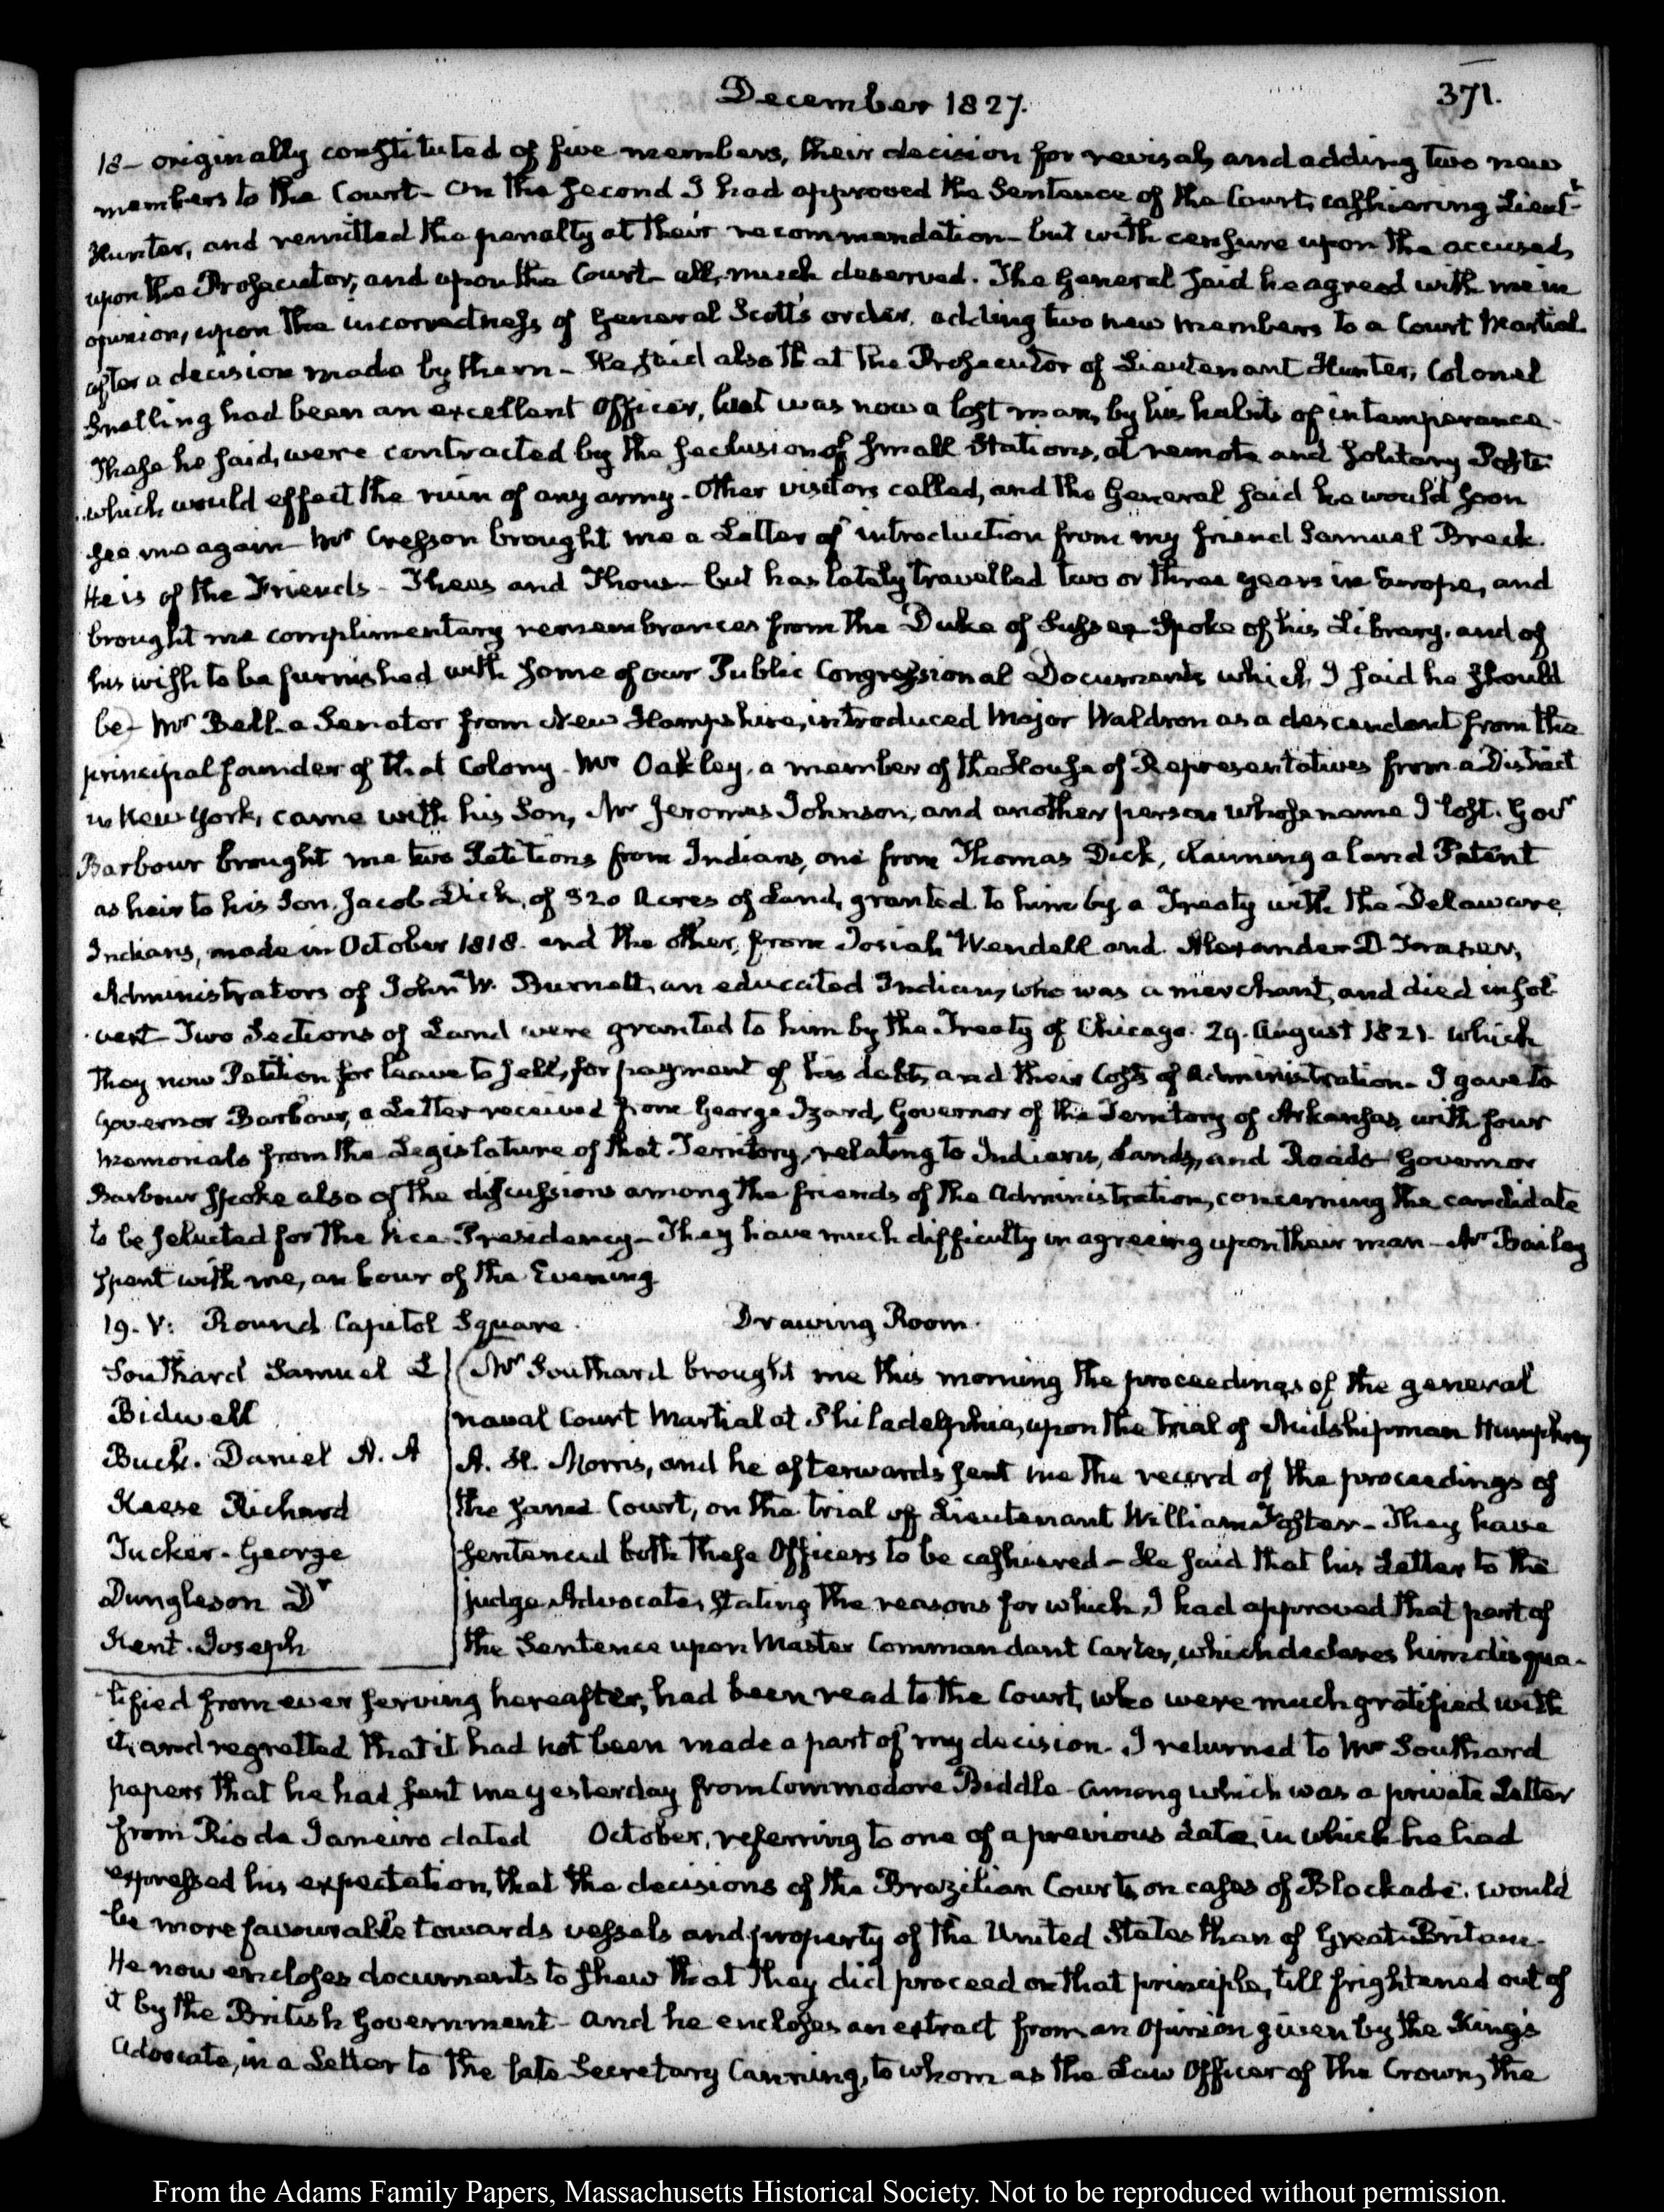 December 1827.
371.
18- originally constituted of five members, their decision for revisal, and adding two new
members to the Court- On the second I had approved the Sentence of the Court, cashiering Lieut.t
Hunter, and remitted the penalty at their recommendation- but with censure upon the accused,
upon the Prosecutor, and upon the Court- all, much deserved. The General said he agreed with me in
opinion, upon the incorrectness of General Scott's order, adding two new members to a Court Martial.
after a decision made by them- He said also that the Prosecutor of Lieutenant Hunter, Colonel
Snelling had been an excellent Officer, but was now a lost man, by his habits of intemperance-
These he said, were contracted by the seclusion of small Stations, at remote and solitary Posts
which would effect the ruin of any army- Other visitors called, and the General said he would soon
see me again- Mr Cresson brought me a Letter of introduction from my friend Samuel Breck.
He is of the Friends- Thees and Thous- but has lately travelled two or three years in Europe, and
brought me complimentary remembrances from the Duke of Sussex- Spoke of his Library, and of
his wish to be furnished with some of our Public Congressional Documents which, I said he should
be- Mr Bell- a Senator from New Hampshire, introduced Major Waldron as a descendant from the
principal founder of that Colony- Mr Oakley, a member of the House of Representatives from a District
in New York, came with his Son, Mr Jeromus Johnson, and another person whose name I lost. Govr
Barbour brought me two Petitions from Indians, one from Thomas Dick, claiming a land Patent
as heir to his Son, Jacob Dick, of 320 Acres of Land, granted to him by a Treaty with the Delaware
Indians, made in October 1818. and the other, from Josiah Wendell and Alexander D Fraser,
Administrators of John W. Burnett, an educated Indian, who was a merchant, and died insol
vent- Two Sections of Land were granted to him by the Treaty of Chicago. 29. August 1821. which
they now Petition for leave to sell, for payment of his debts, and their Costs of Administration- I gave to
Governor Barbour, a Letter received from George Izard, Governor of the Territory of Arkansas, with four
Memorials from the Legislature of that Territory, relating to Indians, Lands, and Roads- Governor
Barbour spoke also of the discussions among the friends of the Administration, concerning the candidate
to be selected for the Vice Presidency- They have much difficulty in agreeing upon their man- Mr Bailey
spent with me, an hour of the Evening
19. V: Round Capitol Square. Drawing Room.
Southard Samuel L
Bidwell
Buck. Daniel A. A
Keese Richard
Tucker- George
Dunglison Dr
Kent. Joseph
Mr Southard brought me this morning the proceedings of the general
naval Court Martial at Philadelphia, upon the trial of Midshipman Humphrey
A. H. Morris, and he afterwards sent me the record of the proceedings of
the same Court, on the trial of Lieutenant William Foster- They have
sentenced both these Officers to be cashiered- He said that his Letter to the
judge Advocate, stating the reasons for which, I had approved that part of
the Sentence upon Master Commandant Carter, which declares him disqua-
lified from ever serving hereafter, had been read to the Court, who were much gratified with
it, and regretted that it had not been made a part of my decision. I returned to Mr Southard
papers that he had sent me yesterday from Commodore Biddle- among which was a private Letter
from Rio de Janeiro dated October, referring to one of a previous date, in which he had
expressed his expectation, that the decisions of the Brazilian Courts, on cases of Blockade, would
be more favourable towards vessels and property of the United States than of Great-Britain-
He now encloses documents to shew that they did proceed on that principle, till frightened out of
it by the British Government- and he encloses an extract from an Opinion given by the King's
Advocate, in a Letter to the late Secretary Canning, to whom as the Law Officer of the Crown, the
From the Adams Family Papers, Massachusetts Historical Society. Not to be reproduced without permission.